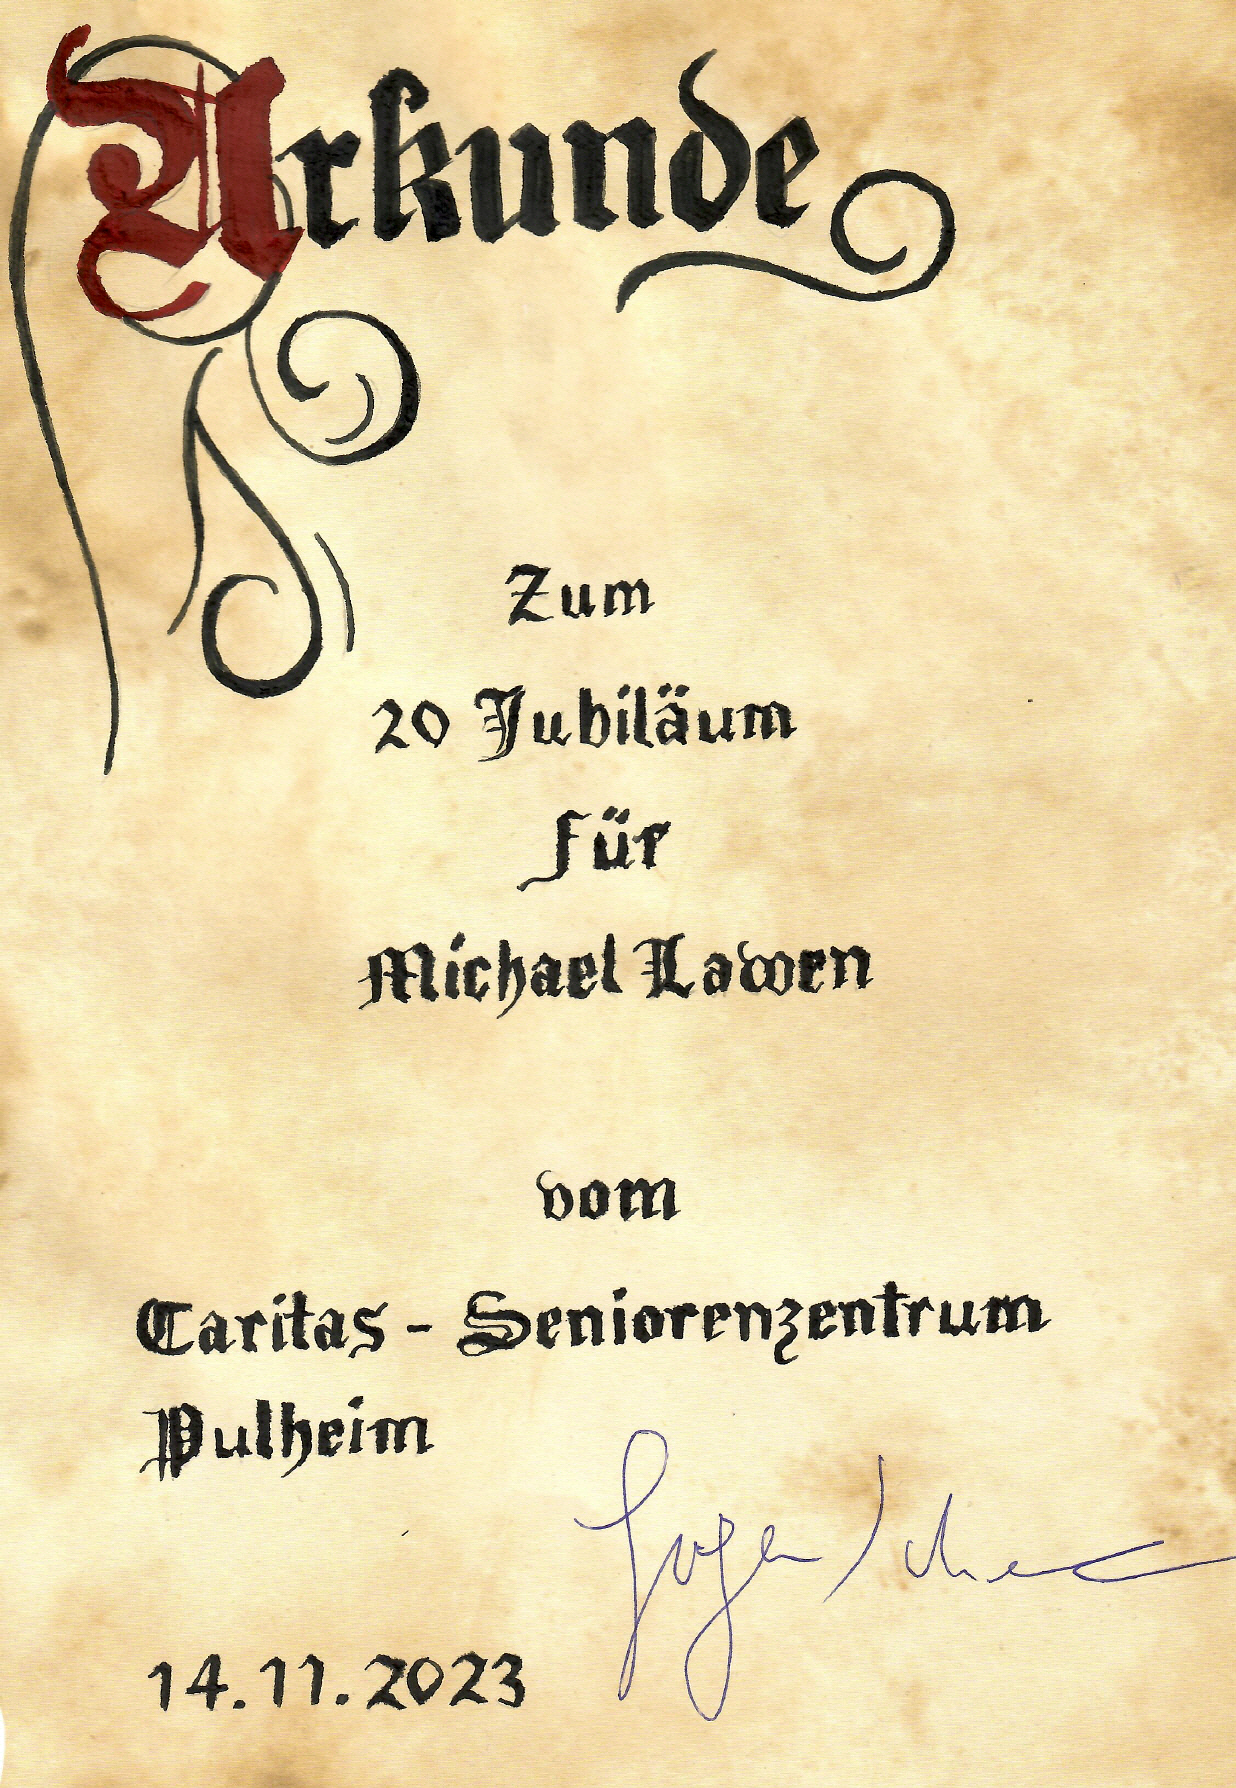 Urkunde
Zum
20 Jubiläum
für
Michael Lawen
vom
Caritas - Seniorenzentrum
Pulheim
14.11.2023